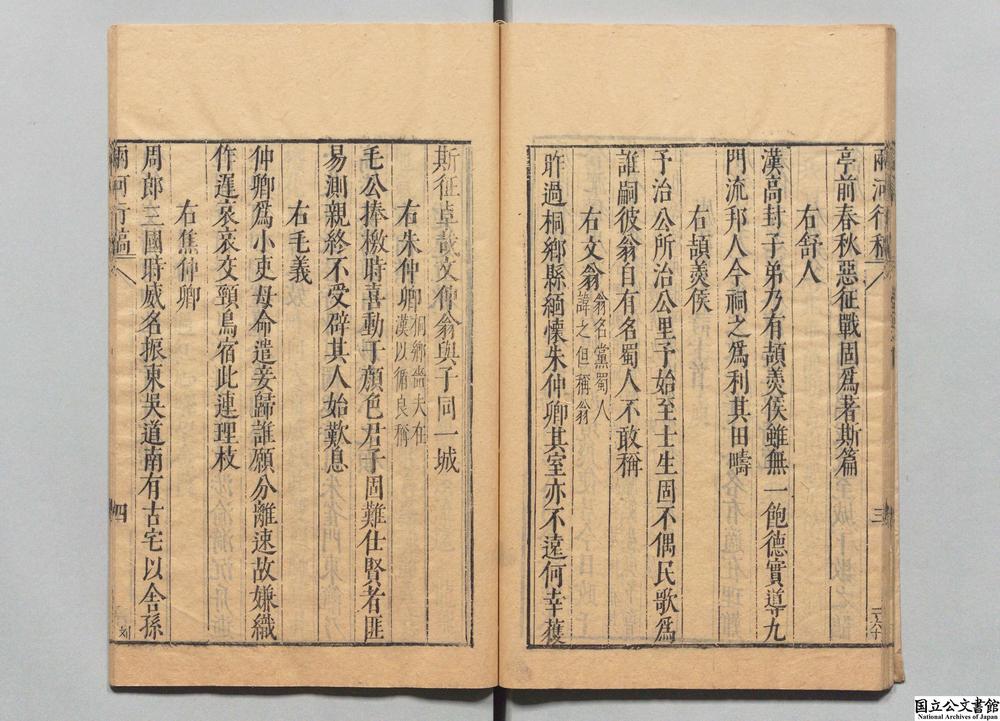 兩河行稿
三
亭前春秋惡征戰固爲著斯篇
右舒人
漢高封子弟乃有頡羹侯雖無一飽德實導九
門流邦人今祠之爲利其田疇
右頡羹侯
予治公所治公里予始至士生固不偶民歌爲
誰嗣彼翁自有名蜀人不敢稱
右文翁翁名黨蜀人
諱之但稱翁
昨過桐鄉縣緬懷朱仲卿其室亦不遠何幸獲
斯征卓哉文仲翁與子同一城
右朱仲卿桐鄉嗇夫在
漢以循良稱
毛公捧檄時喜動于顏色君子固難仕賢者匪
易測親終不受辟其人始歎息
右毛義
仲卿爲小吏母命遣妾歸誰願分離速故嫌織
作遲哀哀交頸鳥宿此連理枝
右焦仲卿
周郎三國時威名振東吳道南有古宅以舍孫
兩河行稿
四
刻
国立公文書館
National Archives of Japan